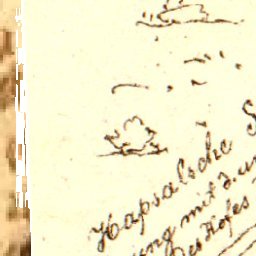 Hapsalsche S
ung mit 3. u
des Hofes